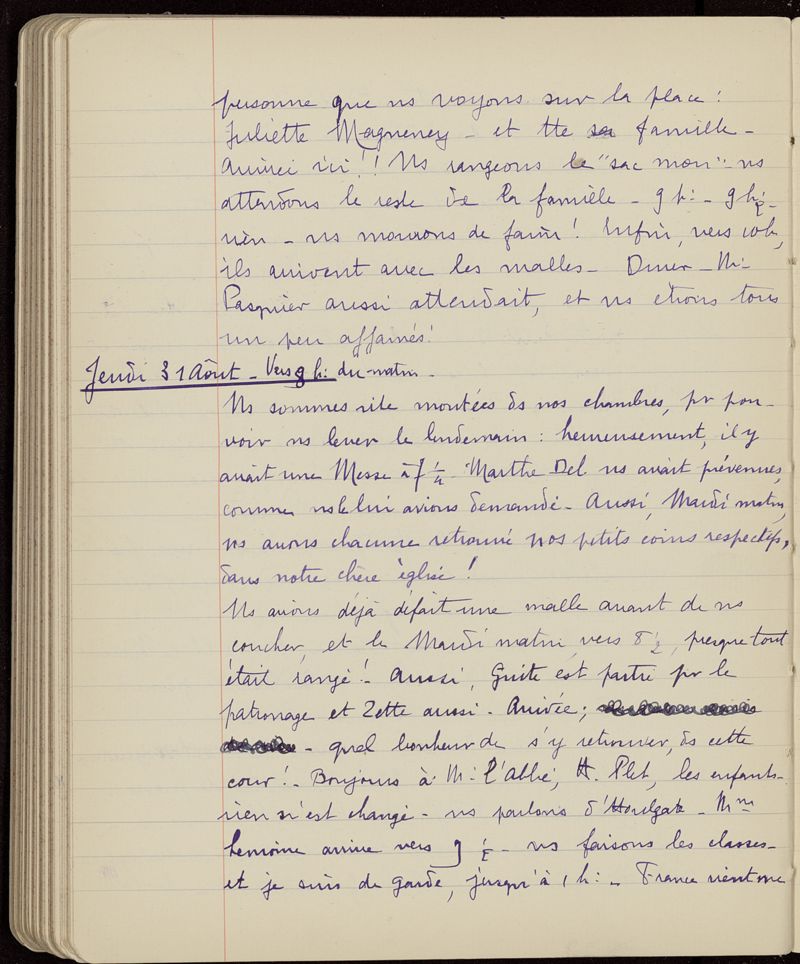 personne que ns voyons sur la place :
Juliette Magneney - et tte sa famille -
arrivée ici !! Ns rangeons le "sac mou" - ns
attendons le reste de la famille - 9 h: - 9 h ½ -
rien - ns mourons de faim ! Enfin, vers 10h,
ils arrivent avec les malles - Diner - Mr
Pasquier aussi attendait, et ns étions tous
un peu affamés !
Jeudi 31 Août - Vers 9 h: du matin -
Ns sommes vite montées ds nos chambres, pr pou-
voir ns lever le lendemain : heureusement, il y
avait une Messe à 7 ¼. Marthe Del ns avait prévenues,
comme ns le lui avions demandé - Aussi, Mardi matin,
ns avons chacune retrouvé nos petits coins respectifs,
dans notre chère église !
Ns avions déjà défait une malle avant de ns
coucher, et le Mardi matin, vers 8 ½, presque tout
était rangé ! - Aussi, Guite est partie pr le
patronage et Zette aussi - Arrivée ;
- quel bonheur de s'y retrouver, ds cette
cour ! - Bonjours à Mr l'Abbé, H. Plet, les enfants -
rien n'est changé - ns parlons d'Houlgate - Mme
Lemoine arrive vers 9 ½ - ns faisons les classes -
et je suis de garde, jusqu'à 1 h: - France vient me